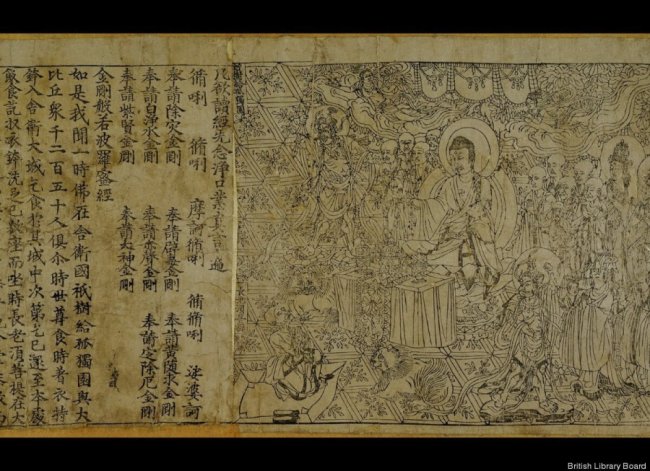 凡欲讀經先念淨口業真言一遍
脩唎 脩唎 摩訶脩唎 脩脩唎 娑婆訶
奉請除灾金剛 奉請辟毒金剛 奉請黃隨求金剛
奉請白淨水金剛 奉請赤聲金剛 奉請定除厄金剛
奉請紫賢金剛 奉請大神金剛
金剛般若波羅蜜經
如是我聞一時佛在舍衛國祇樹給孤獨園與大
比丘衆千二百五十人俱尒時世尊食時著衣持
鉢入舍衛大城乞食於其城中次第乞已還至本處
飯食訖収衣鉢洗足已敷座而坐時長老須菩提在大
British Library Board